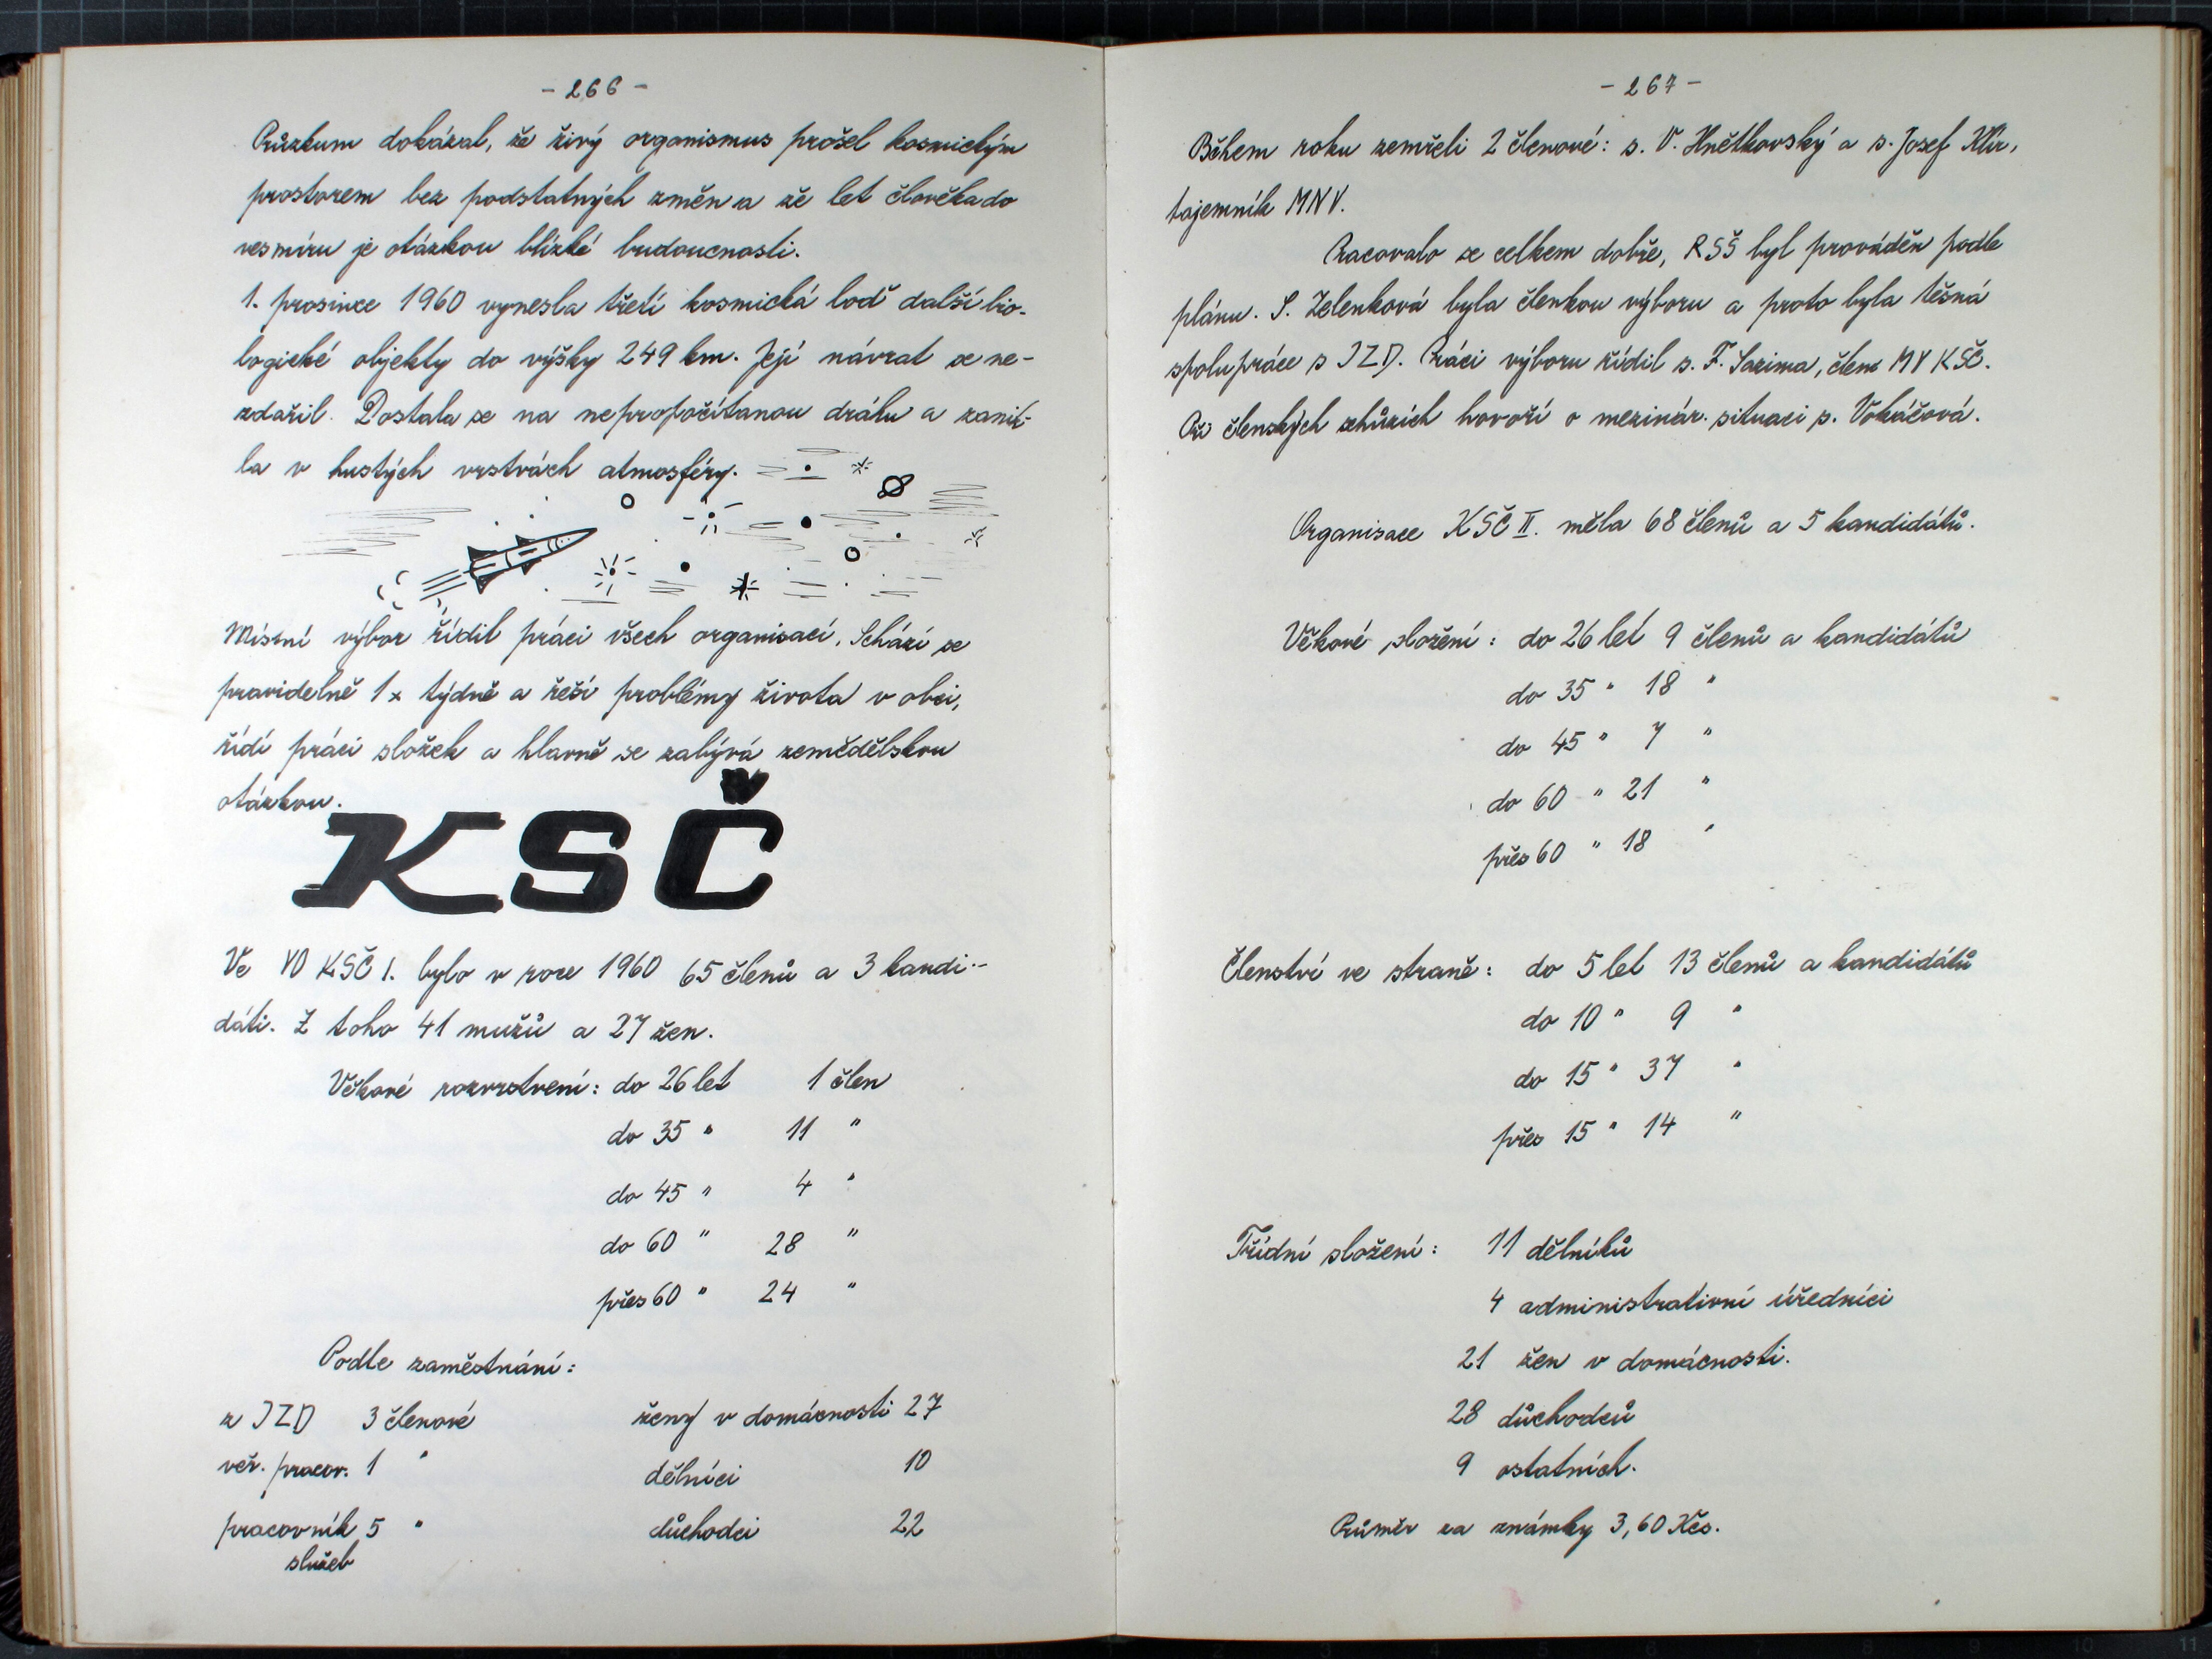 - 266 -
Průzkum dokázal, že živý organismus prošel kosmickým
prostorem bez podstatných změn a že let člověka do
vesmíru je otázkou blízké budoucnosti.
1. prosince 1960 vynesla třetí kosmická loď další bio-
logické objekty do výšky 249 km. Její návrat se ne-
zdařil. Dostala se na nepropočítanou dráhu a zanik-
la v hustých vrstvách atmosféry.
Místní výbor řídil práci všech organisací. Schází se
pravidelně 1x týdně a řeší problémy života v obci,
řídí práci složek a hlavně se zabývá zemědělskou
otázkou.
KSČ
Ve VO KSČ I. bylo v roce 1960 65 členů a 3 kandi-
dáti. Z toho 41 mužů a 27 žen.
Věkové rozvrstvení: do 26 let 1 člen
do 35 " 11 "
do 45 " 4 "
do 60 " 28 "
přes 60 " 24 "
Podle zaměstnání:
z JZD 3 členové ženy v domácnosti 27
veř. pracov. 1 " dělníci 10
pracovník 5 " důchodci 22
služeb
- 267 -
Během roku zemřeli 2 členové: s. V. Hnětkovský a s. Josef Klír,
tajemník MNV.
Pracovalo se celkem dobře, RSŠ byl prováděn podle
plánu. S. Zelenková byla členkou výboru a proto byla těsná
spolupráce s JZD. Práci výboru řídil s. F. Sazima, člen MV KSČ.
Při členských schůzích hovoří o mezinár. situaci s. Vokáčová.
Organisace KSČ II. měla 68 členů a 5 kandidátů.
Věkové složení: do 26 let 9 členů a kandidátů
do 35 " 18 "
do 45 " 7 "
do 60 " 21 "
přes 60 " 18 "
Členství ve straně: do 5 let 13 členů a kandidátů
do 10 " 9 "
do 15 " 37 "
přes 15 " 14 "
Třídní složení: 11 dělníků
4 administrativní úředníci
21 žen v domácnosti.
28 důchodců
9 ostatních.
Průměr za známky 3,60 Kčs.